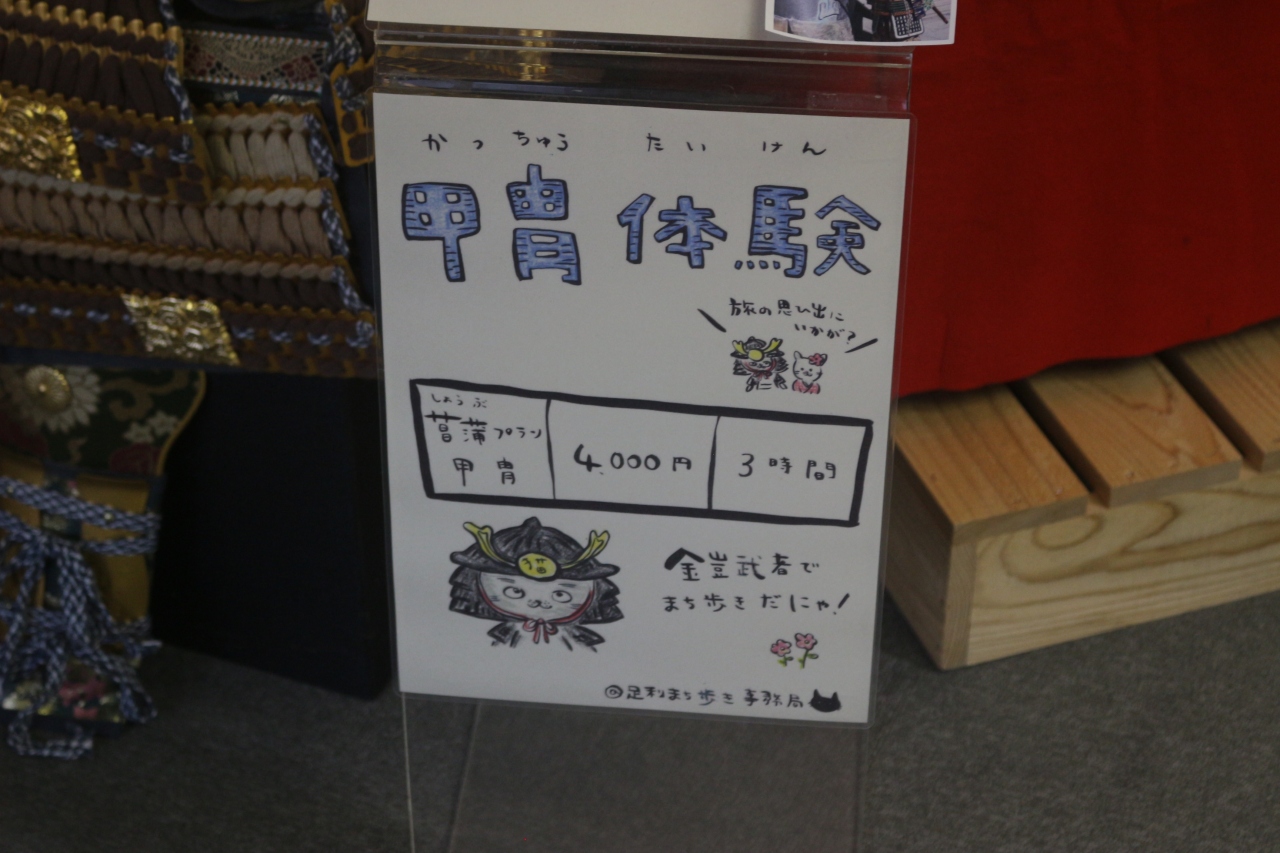 かっちゅう たいけん
甲冑体験
旅の思ひ出に
いかが?
しょうぶ
菖蒲プラン
甲冑
4,000円
3時間
猫
鎧武者で
まち歩きだにゃ!
@足利まち歩き事務局